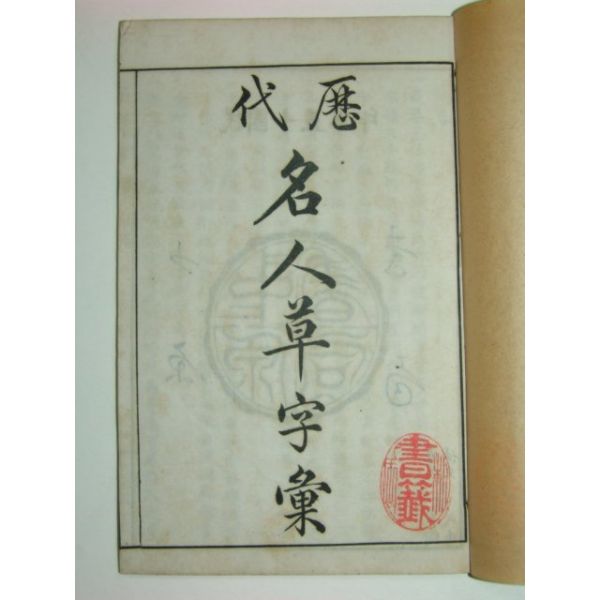 歷代
名人草字彙
書籤